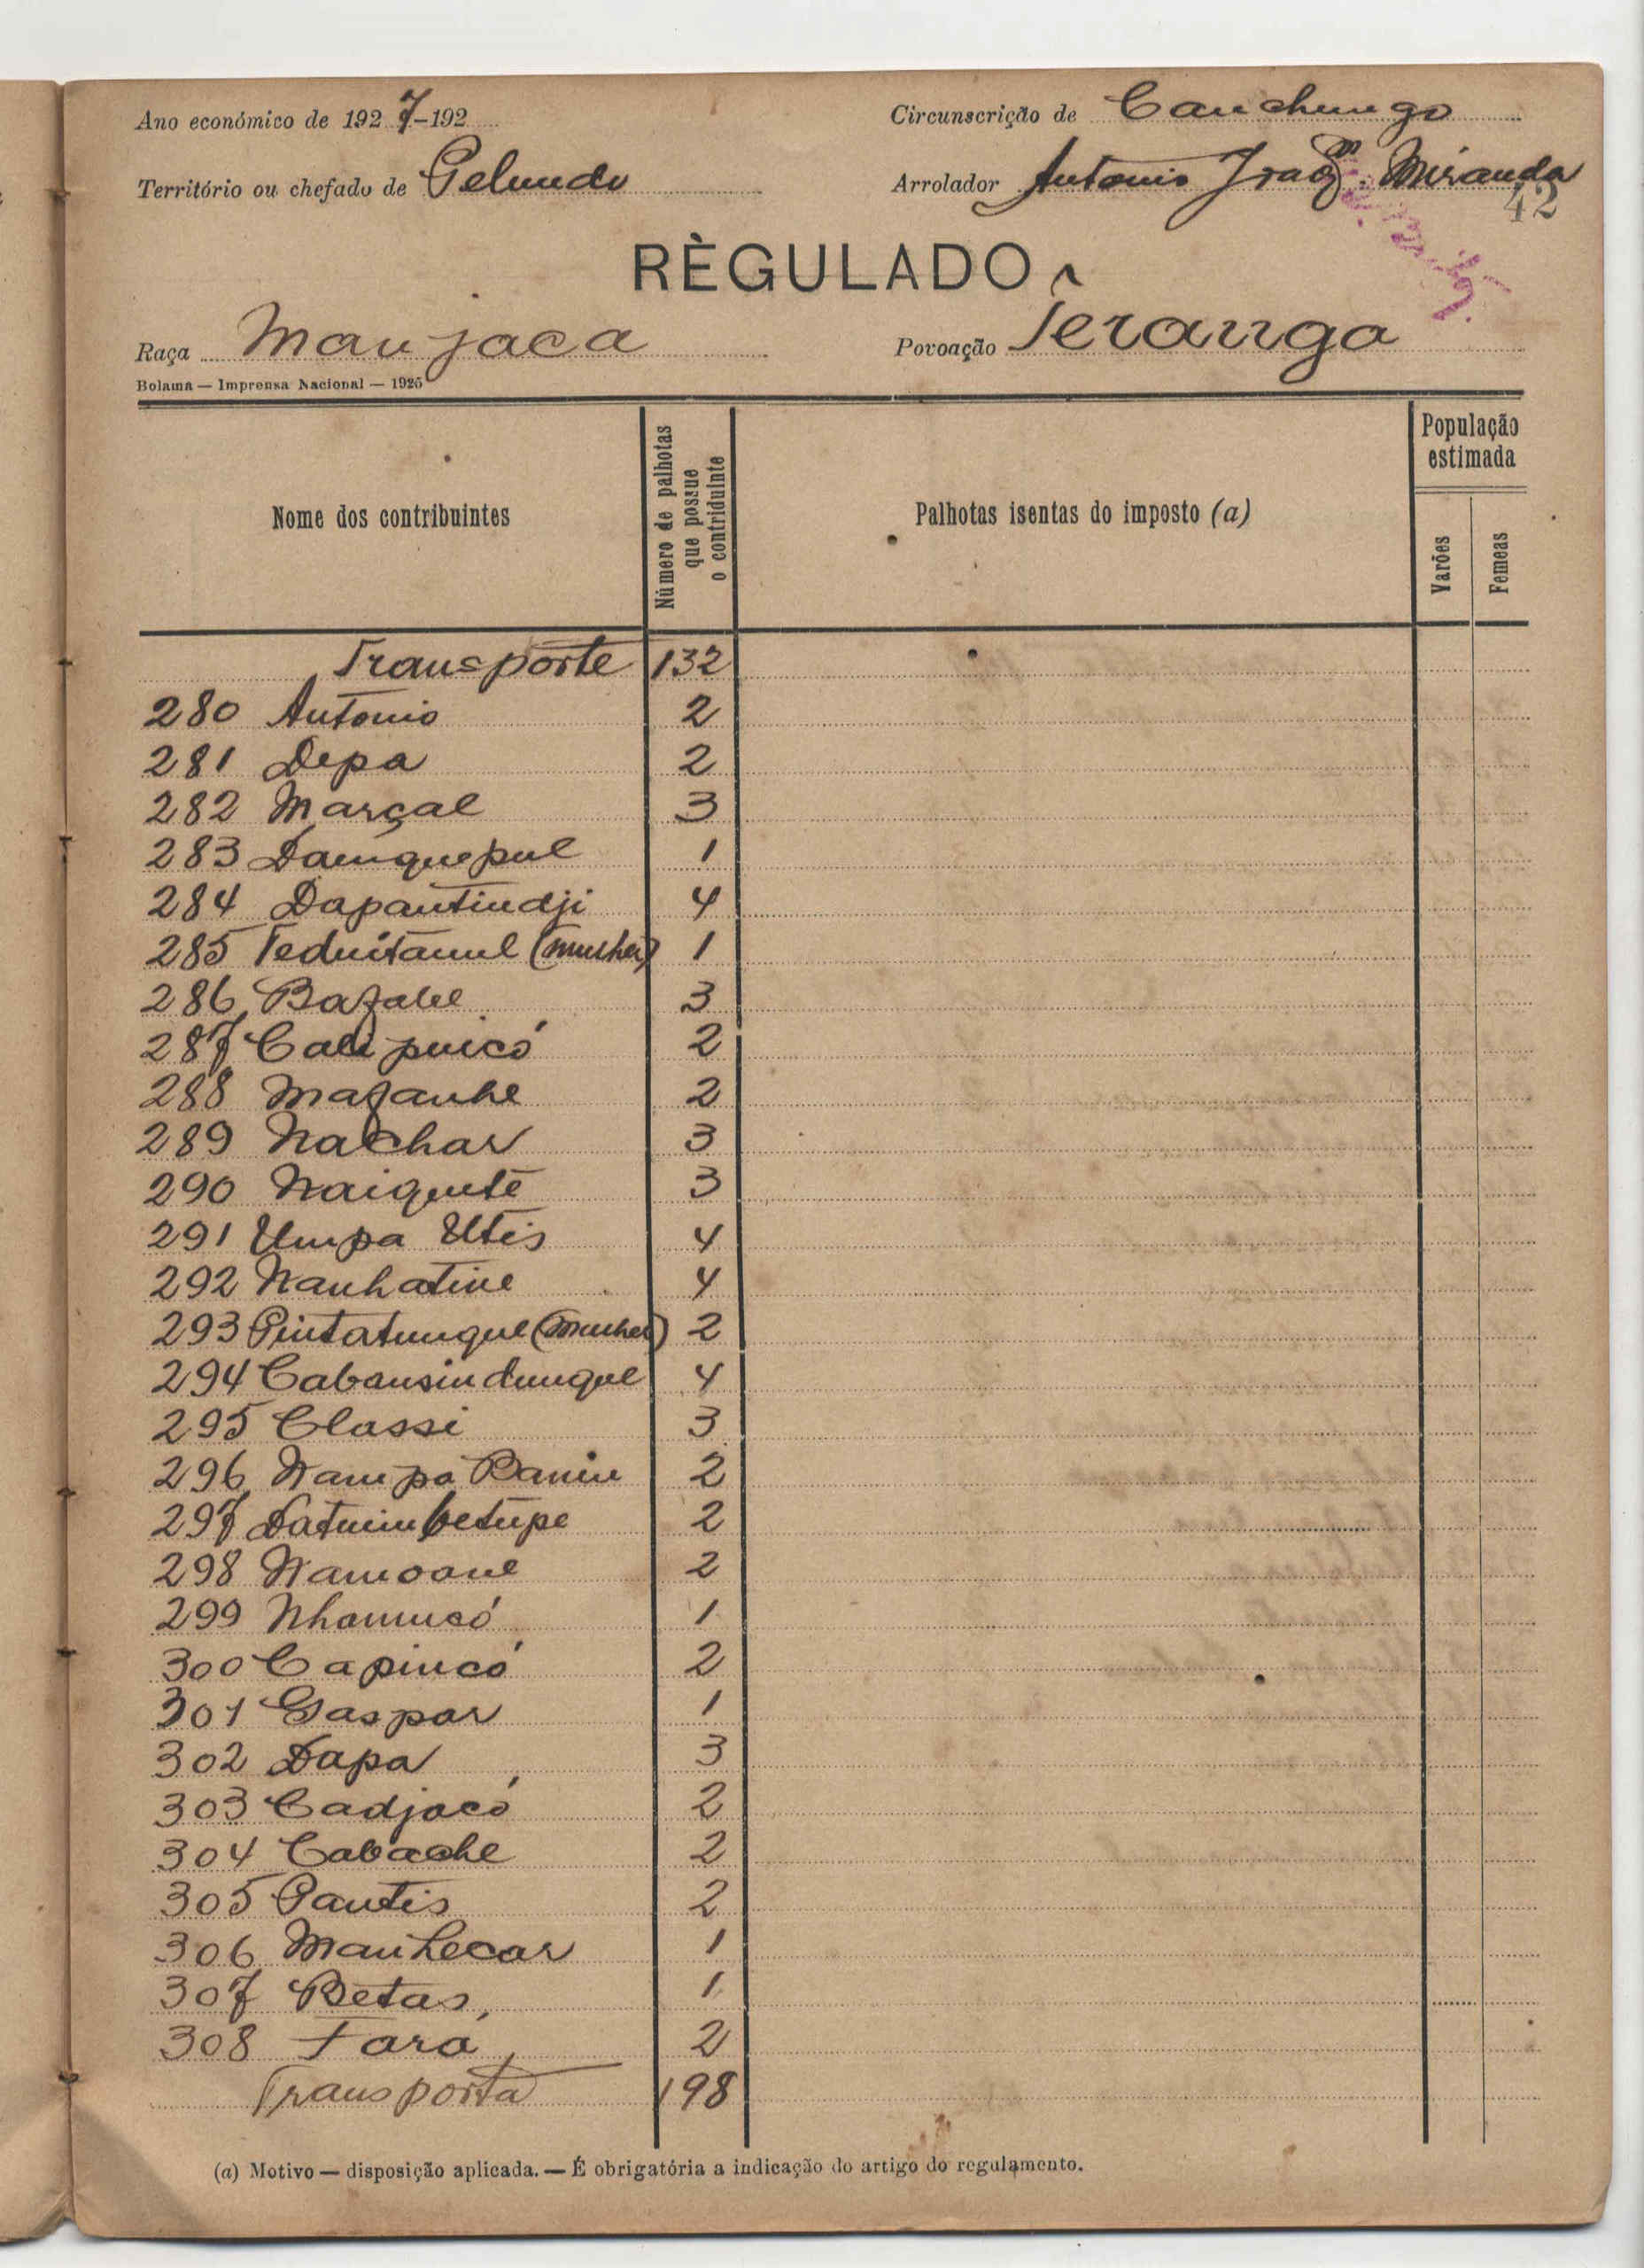 Ano económico de 1927-192
Circunscrição de Canchungo
Território ou chefado de Pelundo
Arrolador Antonio Joaqᵐ Miranda
42
RÈGULADO
Raça Manjaca
Povoação
Bolama — Imprensa Nacional — 1925
Nome dos contribuintes
Número de palhotas que possue o contriduinte
Palhotas isentas do imposto (a)
População estimada
Varões
Femeas
Transporte 132
280 Antonio 2
281 Depa 2
282 Marçal 3
283 Damquepul 1
284 Dapantindji 4
285 (mulher) 1
286 Bafale 3
287 2
288 Mafanhe 2
289 Nachar 3
290 Naiquete 3
291 Umpa Utis 4
292 Nanhatine 4
293 Pintatunque (mulher) 2
294 Cabansindunque 4
295 Classi 3
296 Nampa Banin 2
297 2
298 Namoane 2
299 Nhamucó 1
300 Capincó 2
301 Gaspar 1
302 Dapa 3
303 Cadjacó 2
304 Cabache 2
305 Pantis 2
306 Manhecar 1
307 Betas 1
308 Fará 2
Transporta 198
(a) Motivo — disposição aplicada. — É obrigatória a indicação do artigo do regulamento.